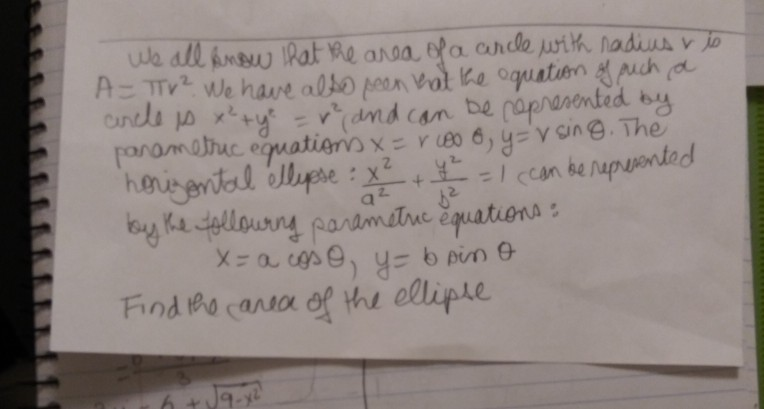 We all know that the area of a circle with radius r is
A = πr². We have also seen that the equation of such a
circle is x² + y² = r², and can be represented by
parametric equations x = r cos θ, y = r sin θ. The
horizontal ellipse : x²/a² + y²/b² = 1 can be represented
by the following parametric equations :
x = a cos θ, y = b sin θ
Find the area of the ellipse
3
6 + √9-x²